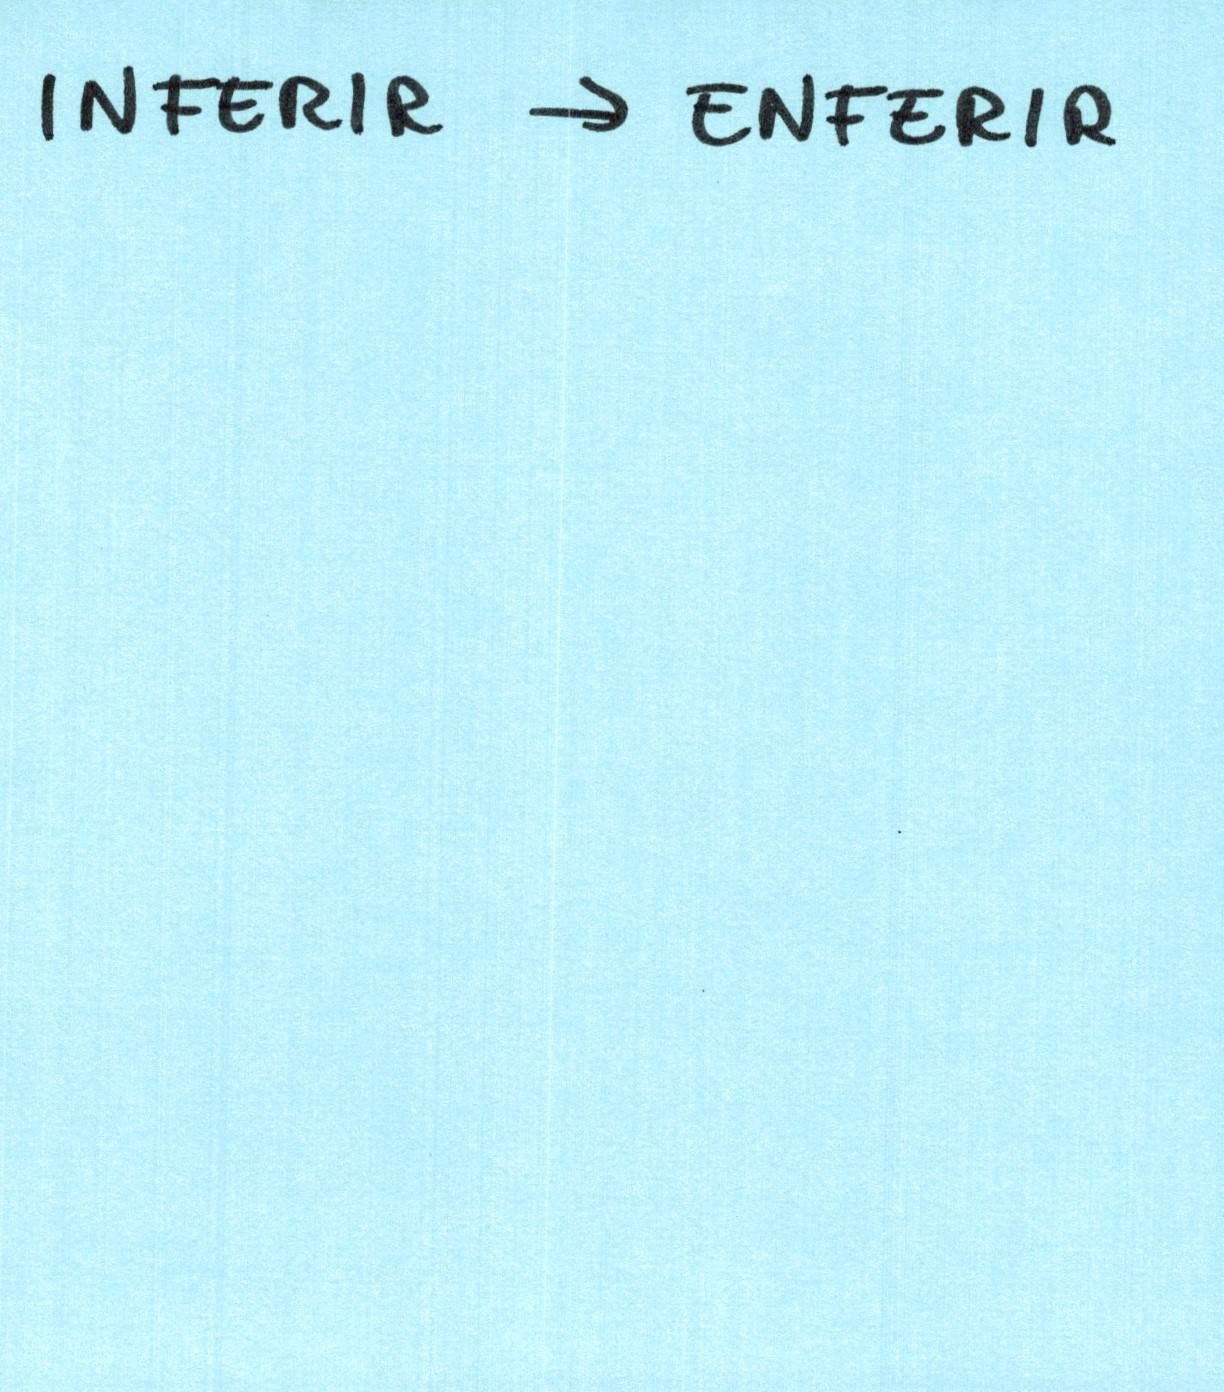 INFERIR → ENFERIR